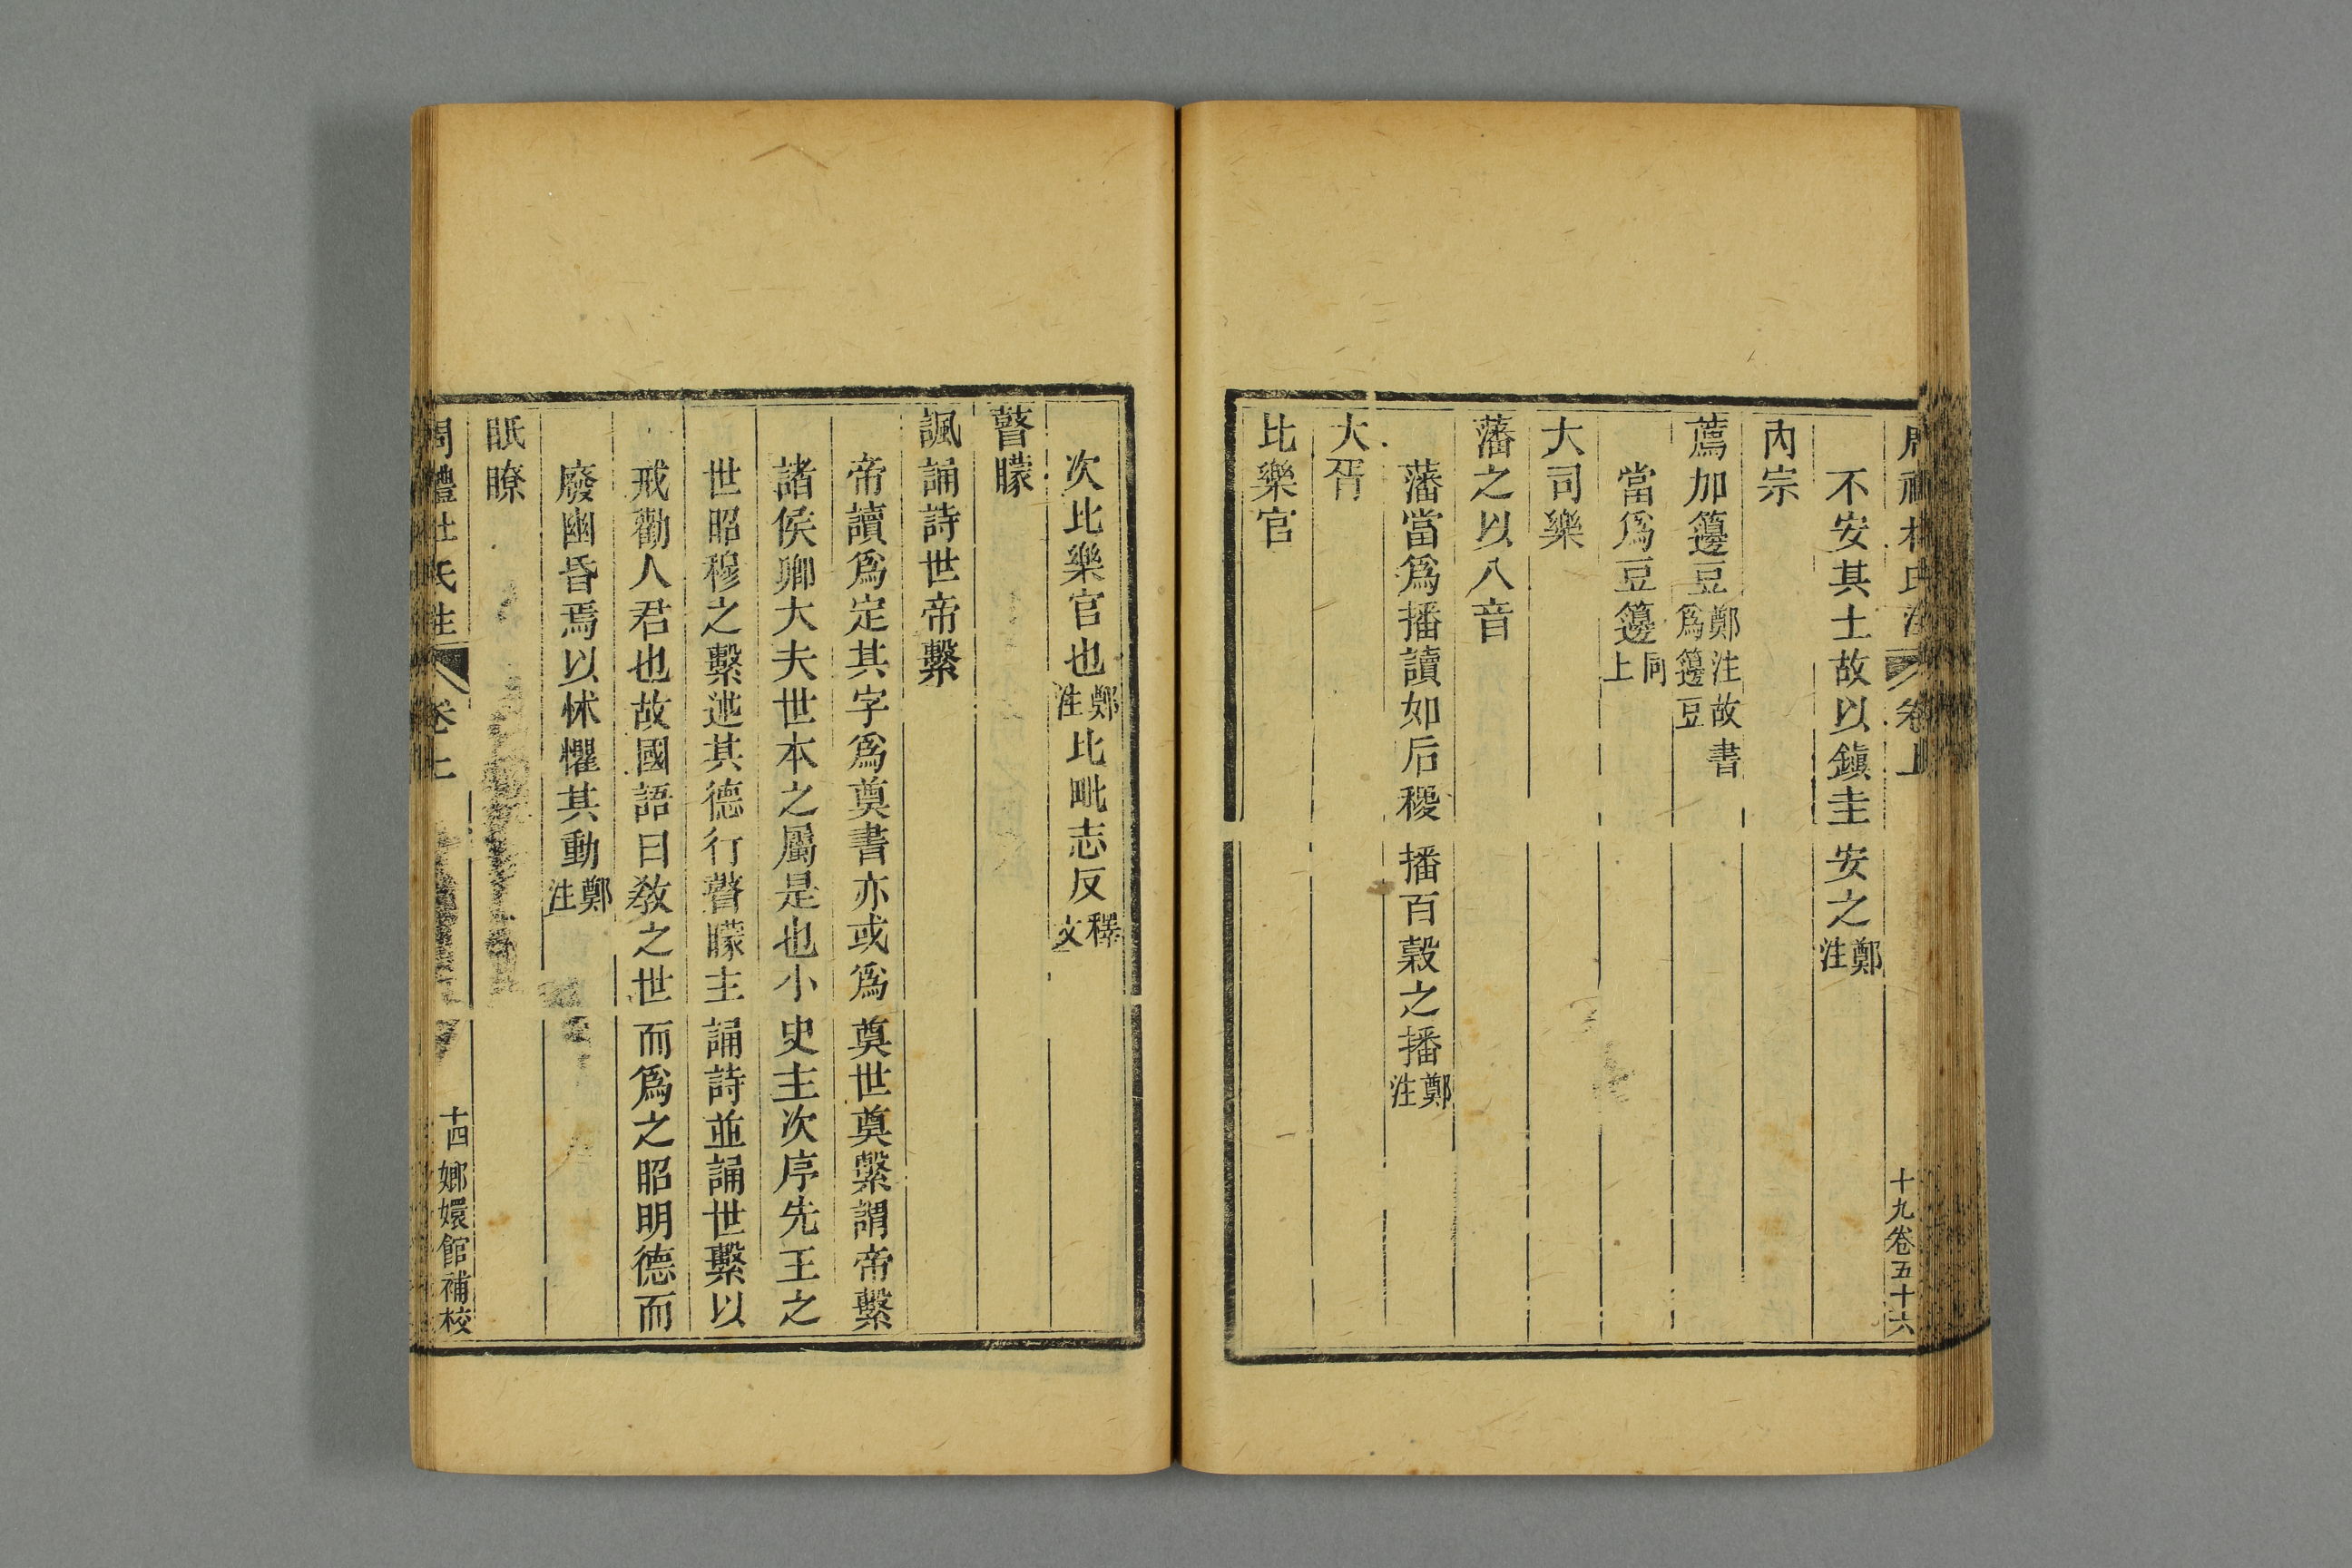 周禮杜氏注 卷上 十九卷五十六
不安其土故以鎭圭安之鄭注
內宗
薦加籩豆鄭注故書爲籩豆
當爲豆籩同上
大司樂
藩之以八音
藩當爲播讀如后稷播百穀之播鄭注
大胥
比樂官
次比樂官也鄭注比毗志反釋文
瞽矇
諷誦詩世帝繫
帝讀爲定其字爲奠書亦或爲奠世奠繫謂帝繫
諸侯卿大夫世本之屬是也小史主次序先王之
世昭穆之繫述其德行瞽矇主誦詩並誦世繫以
戒勸人君也故國語曰敎之世而爲之昭明德而
廢幽昏焉以怵懼其動鄭注
眂瞭
周禮杜氏注 卷上 十四 嫏嬛館補校